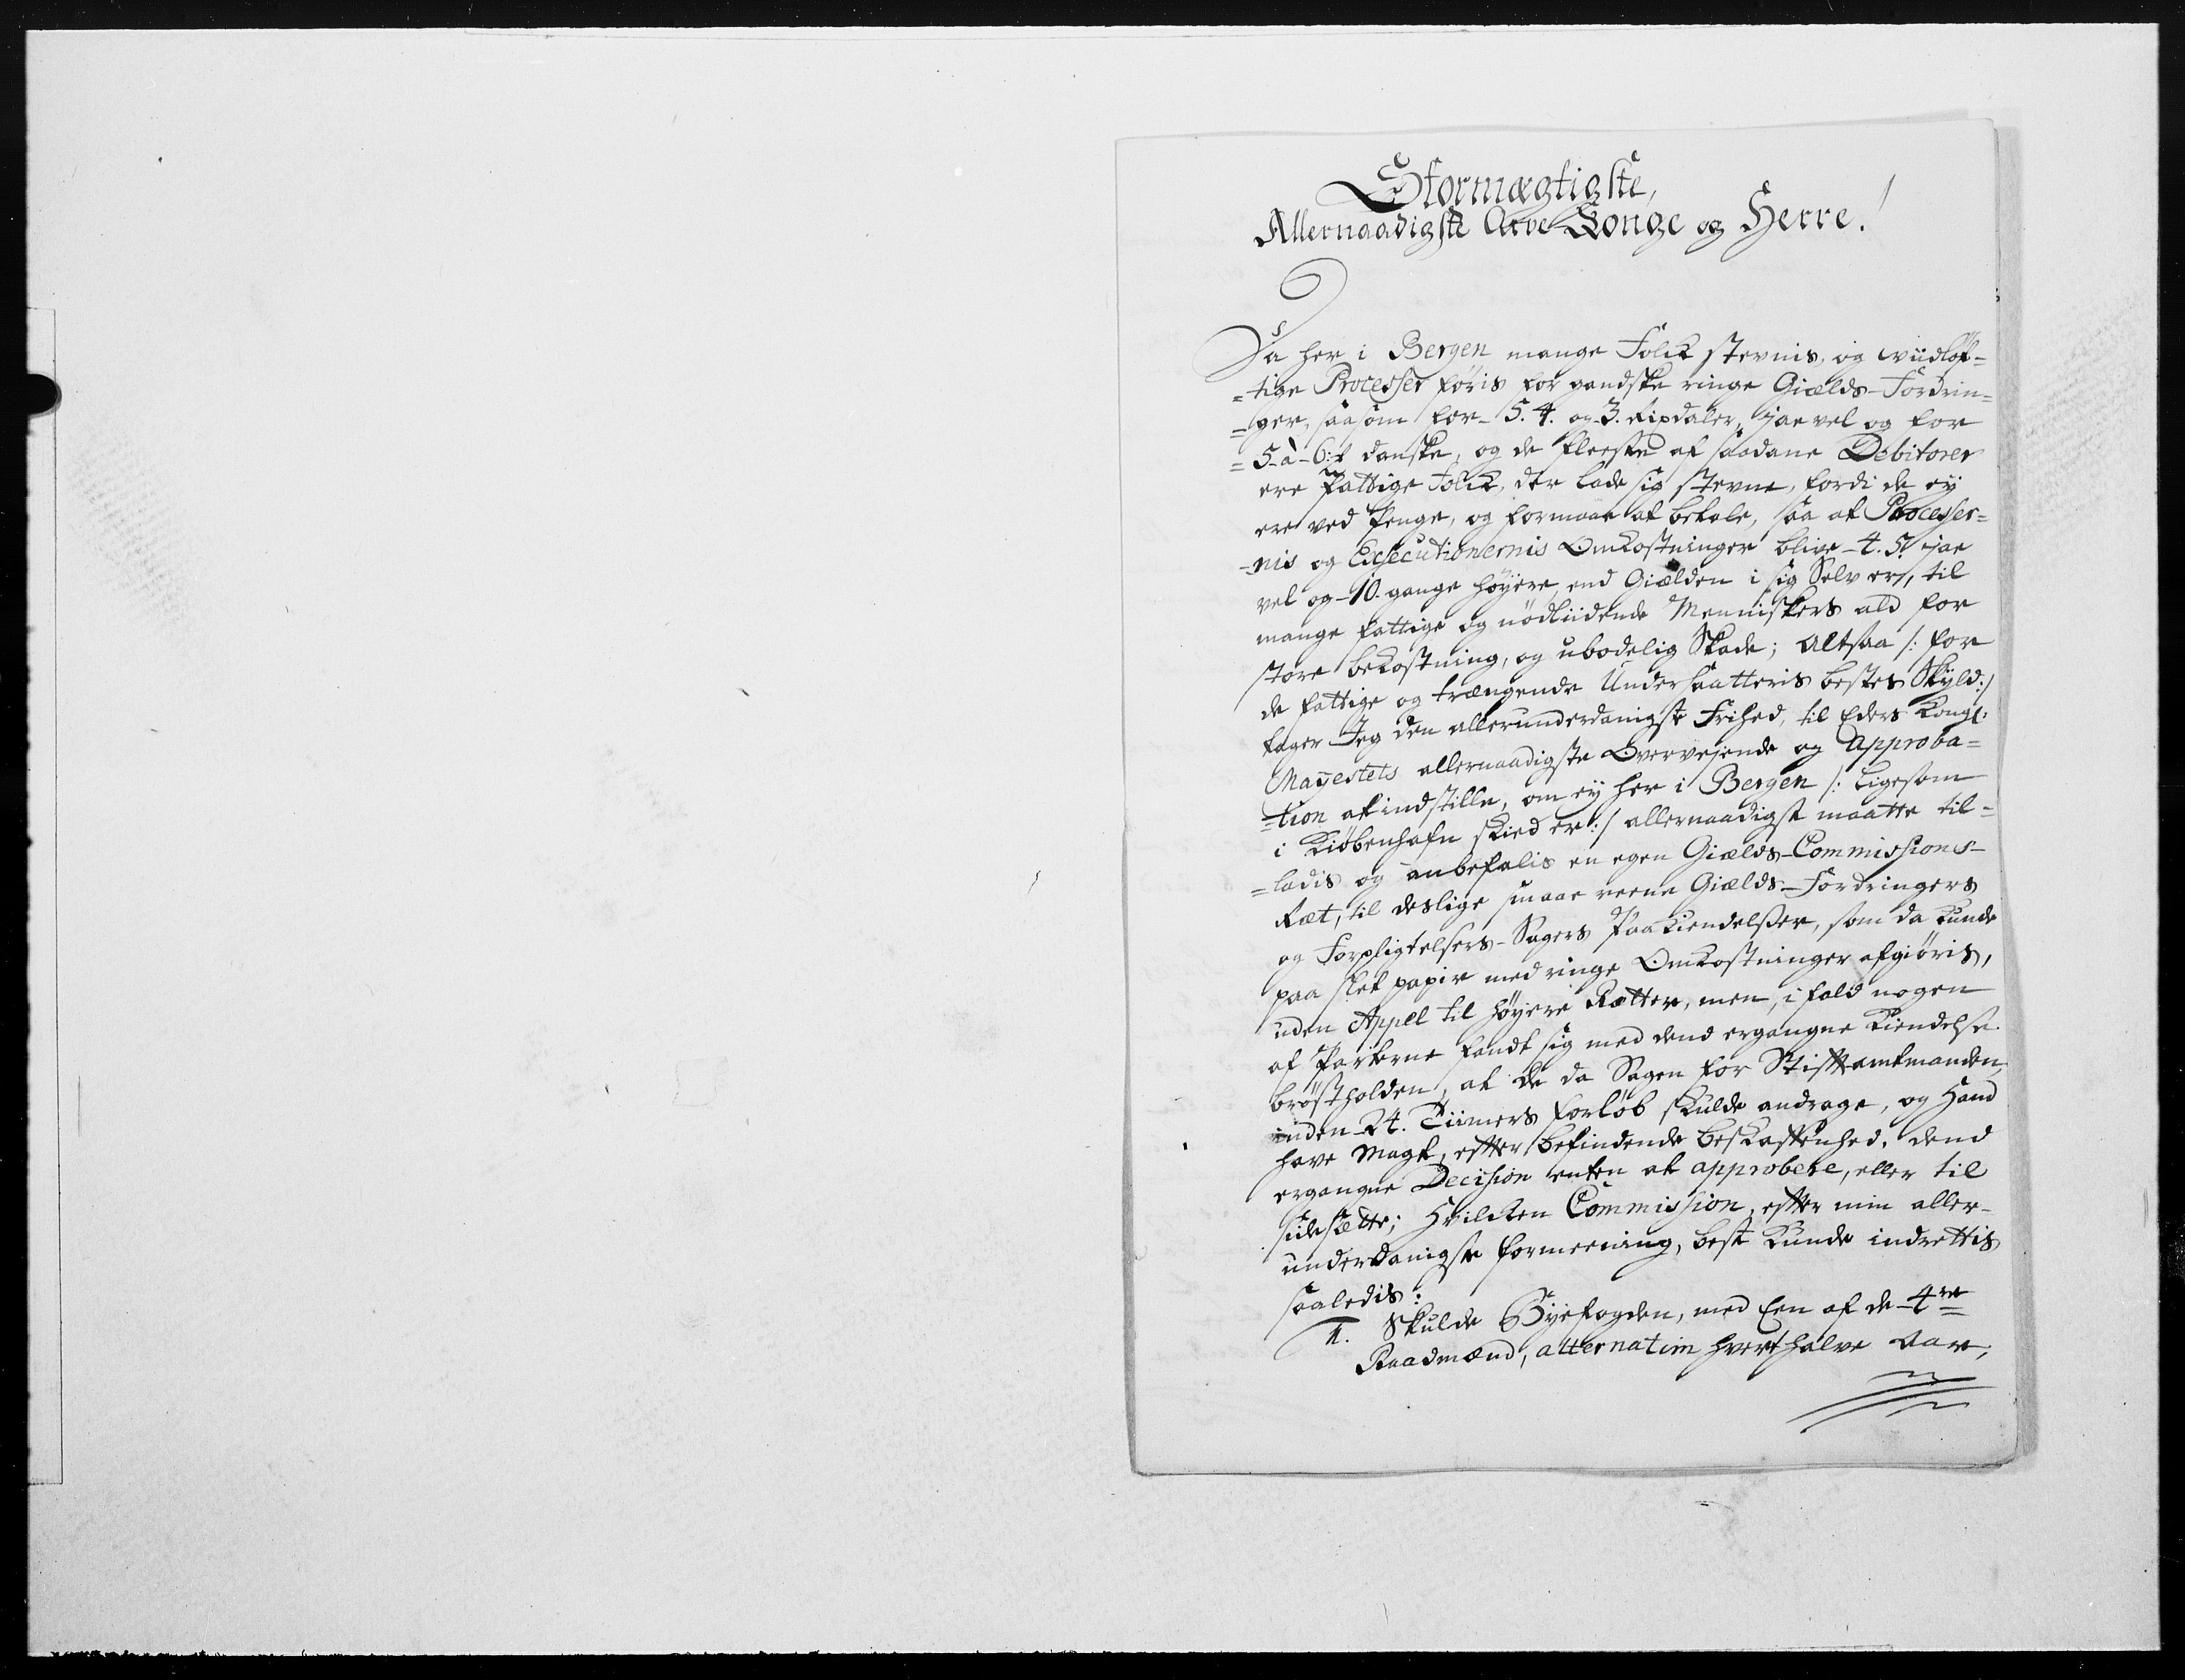 Stormægtigste,
Allernaadigste Arve Konge og Herre!
Da her i Bergen mange Folck stevnis, og viidløf-
=tige Processer føris for gandske ringe Giælds-Fordrin=
=ger, saasom for 5. 4. og 3. Rixdaler, jae vel og for
=5 à 6: danske, og de fleeste af saadane Debitorer
ere fattige Folck, der lade sig stevne, fordi de ey
ere ved Penge, og formaae at betale, saa at Processer=
-nis og Executionernis Omkostninger blive 4. 5. jae
vel og 10. gange høyere, end Giælden i sig Selv er, til
mange fattige og nødliidende Menniskers ald for
store bekostning, og ubodelig Skade; Altsaa /: for
de fattige og trængende Undersaatteris bestes Skyld:/
tager Jeg den allerunderdanigste Frihed, til Eders Kongl:
Mayestets allernaadigste Overvejende og Approba=
=tion at indstille, om ey her i Bergen /: ligesom
i Kiøbenhafn skied er:/ allernaadigst maatte til=
=ladis og anbefalis en egen Giælds-Commissions-
Ræt, til deslige smaae reene Giælds-Fordringers
og Forpligtelsers-Sagers Paakiendelser, som da kunde
paa slet papir med ringe Omkostninger afgiøris,
uden Appel til høyere Rætter, men, i fald nogen
af Parterne fandt sig med dend ergangne Kiendelse
brøstholden, at de da Sagen for Stiftamtmanden,
inden 24. Tiimers forløb skulde andrage, og Hand
have Magt, efter befindende beskaffenhed, dend
ergangne Decision enten at approbere, eller til
sidesætte; Hvilcken Commission, efter min aller-
underdanigste formeening, best kunde indrettis
saaledis:
1. Skulde Byefogden, med Een af de 4re
Raadmænd, alternatim hvert halve Aar,